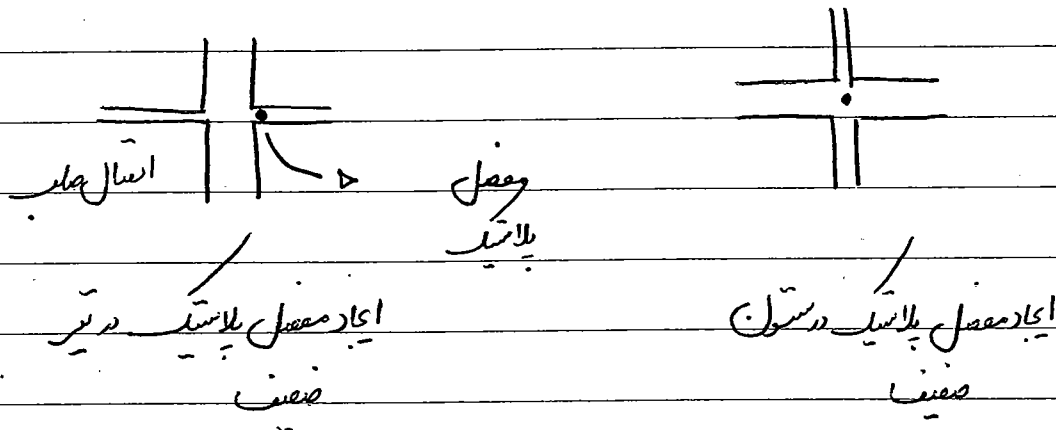 اتصال صلب
مفصل
پلاستیک
ایجاد مفصل پلاستیک در ستون
ضعیف
ایجاد مفصل پلاستیک در تیر
ضعیف